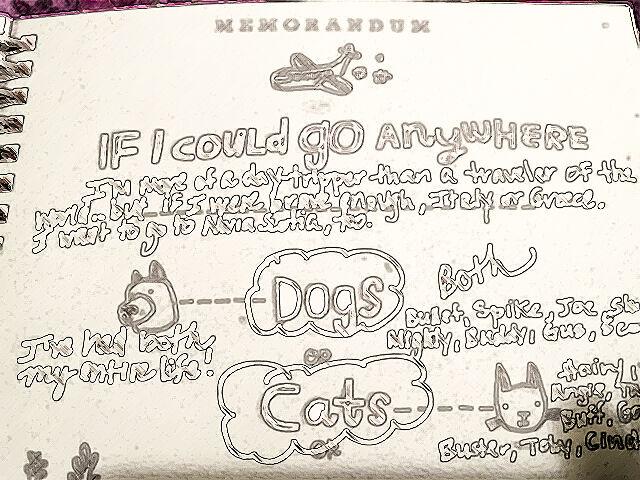 MEMORANDUM
IF I COULD go ANYWHERE
I'm more of a day tripper than a traveler of the
world.. but if I were brave enough, Italy or Greece.
I want to go to Nova Scotia, too.
Both
Dogs
Bullet, Spike, Joe,
Buddy, Gus,
I've had both,
my entire life.
or
Cats
Angie,
Buff,
Buster, Toby, Cind
OR